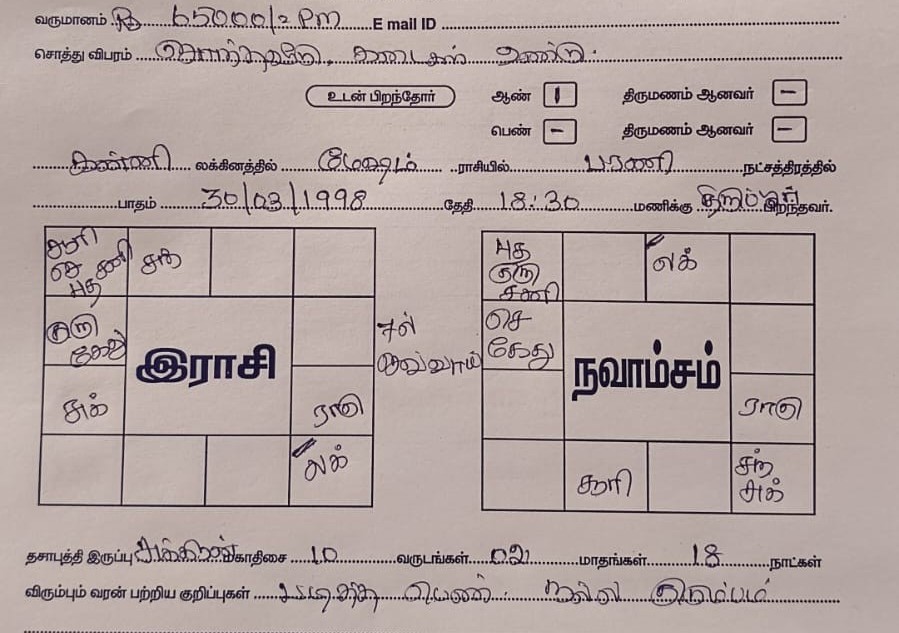 வருமானம் Rs 65000/= Pm E mail ID
சொத்து விபரம் சொந்தவீடு, கடைகள் உண்டு.
உடன் பிறந்தோர் ஆண் 1 திருமணம் ஆனவர் -
பெண் - திருமணம் ஆனவர் -
கன்னி லக்கினத்தில் மேஷம் ராசியில் பரணி நட்சத்திரத்தில்
பாதம் 30/03/1998 தேதி 18:30 மணிக்கு திருப்பூர் பிறந்தவர்.
சூரி செ சனி புத
சந்
குரு கேது
சுக்
ராகு
லக்
இராசி
7ல் செவ்வாய்
புத குரு சனி
லக்
செ கேது
ராகு
சூரி
சந் சுக்
நவாம்சம்
தசாபுத்தி இருப்பு சுக்கிரன் மகாதிசை 10 வருடங்கள் 02 மாதங்கள் 18 நாட்கள்
விரும்பும் வரன் பற்றிய குறிப்புகள் படித்த பெண். நல்ல குடும்பம்